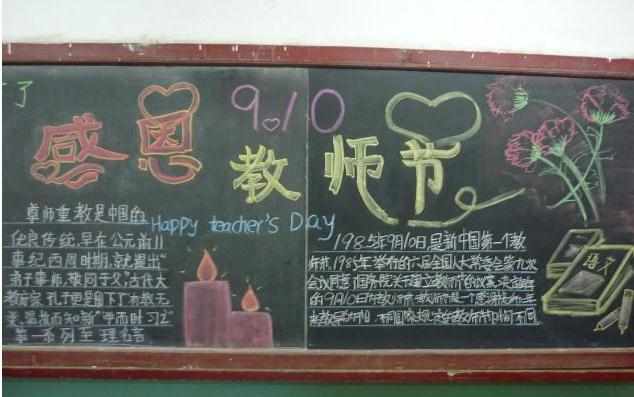 了
感恩
9.10
教师节
Happy teacher's Day
尊师重教是中国的
优良传统,早在公元前11
世纪西周时期,就提出"
弟子事师,敬同于父",古代大
教育家孔子更是留下了"有教无
类""温故而知新""学而时习之"
等一系列至理名言
1985年9月10日,是新中国第一个教
师节,1985年 第六届全国人大常委会第九次
会议同意了国务院关于建立教师节的议案,决定
的9月10日为教师节,教师节是一个感谢
语文